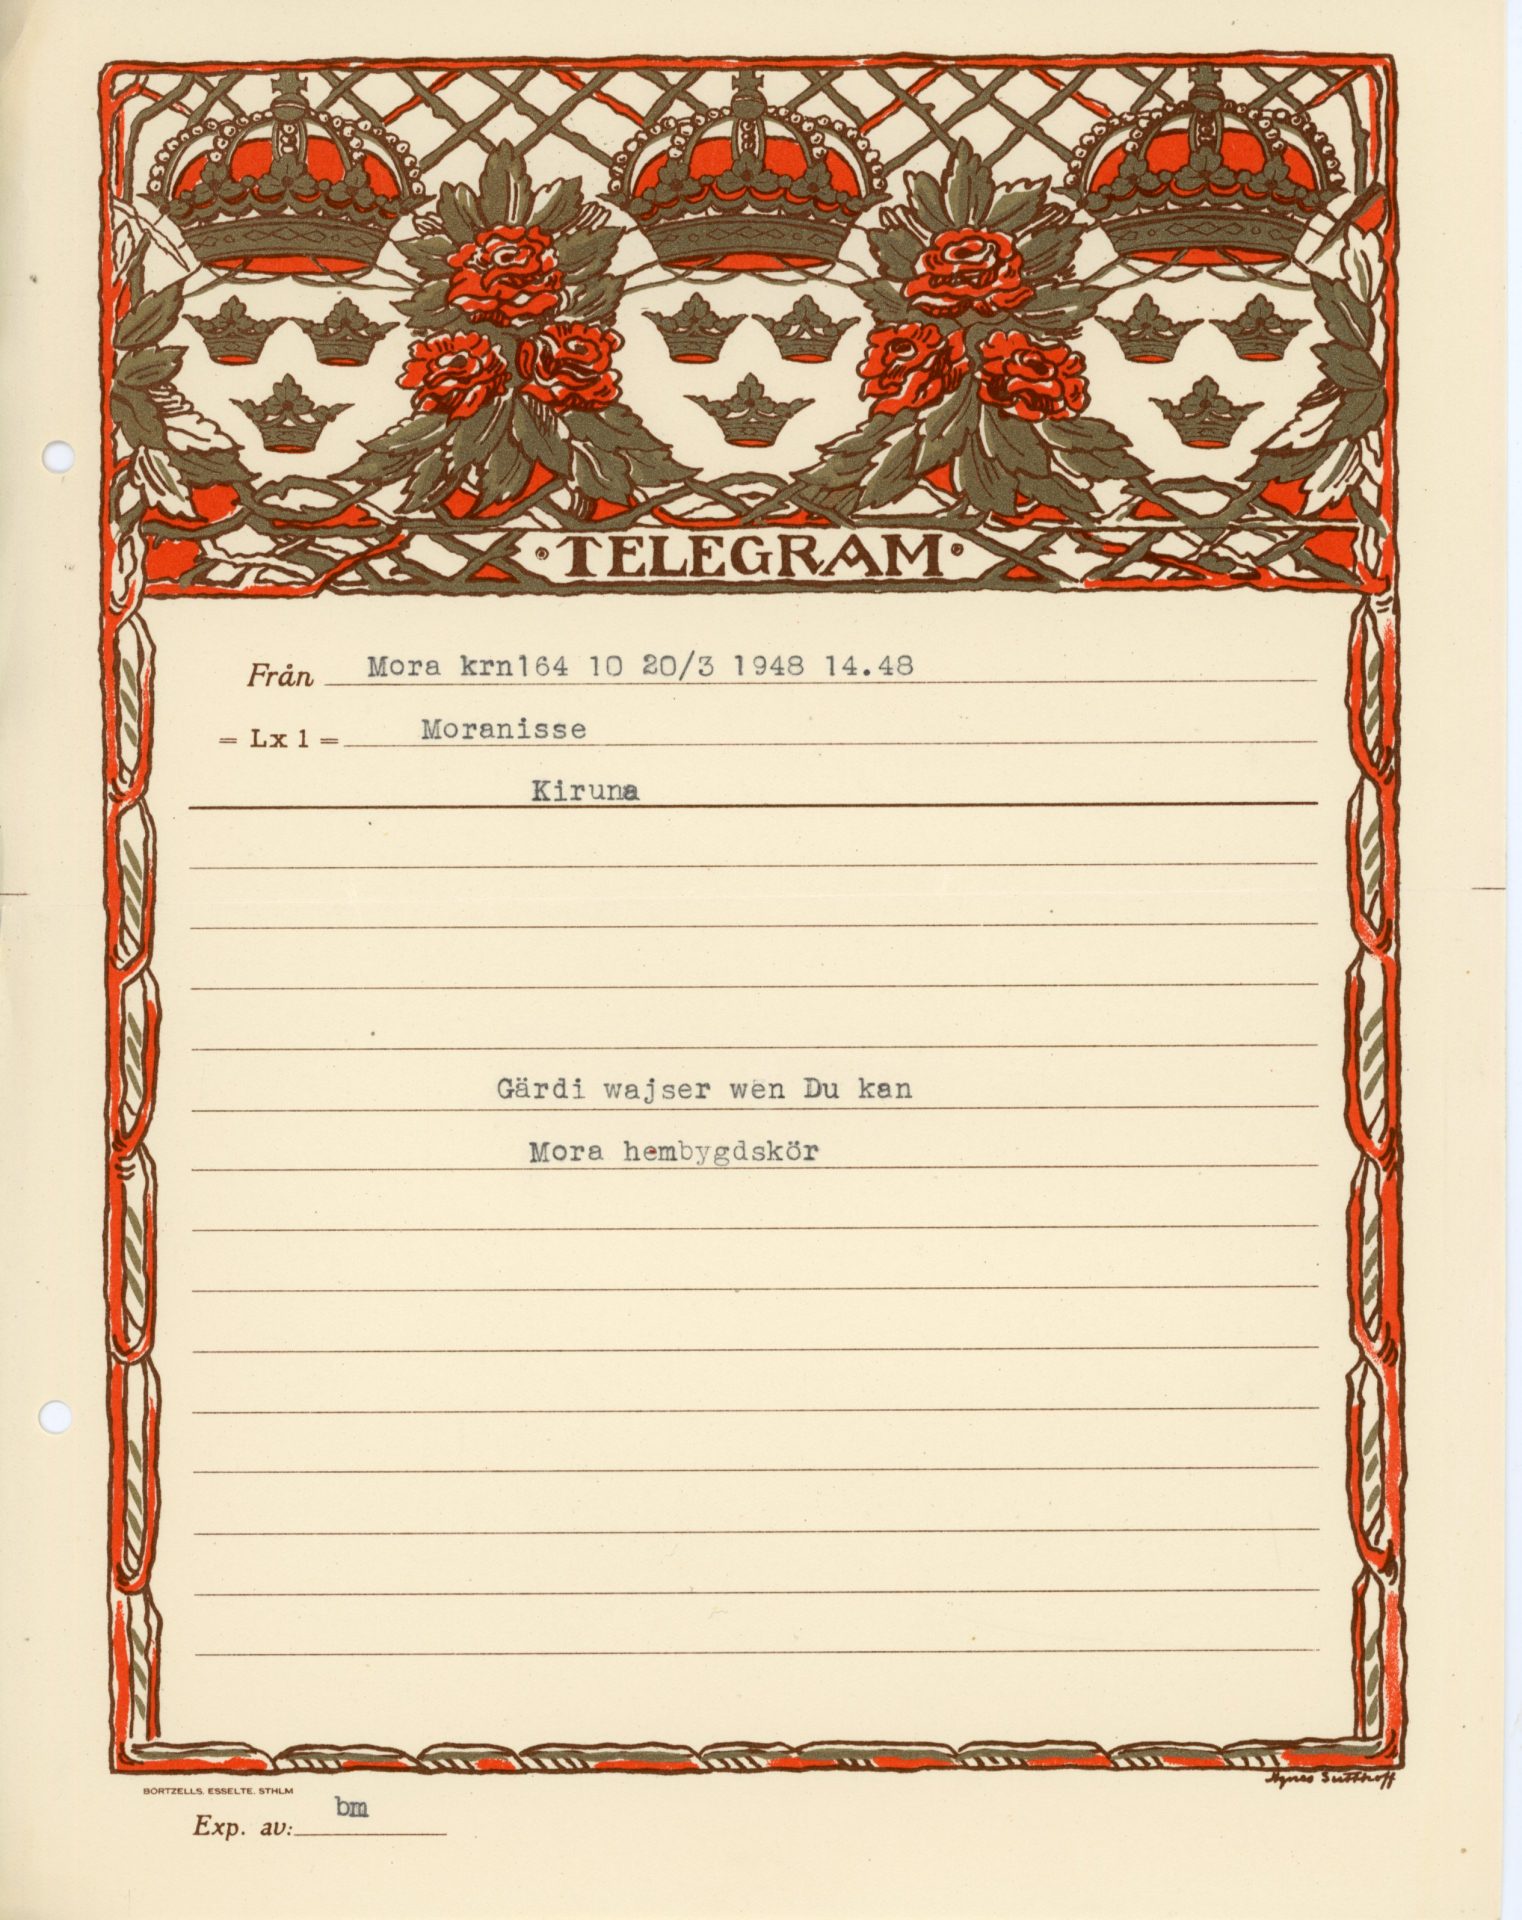 ·TELEGRAM·
Från Mora krn164 10 20/3 1948 14.48
= Lx 1 = Moranisse
Kiruna
Gärdi wajser wen Du kan
Mora hembygdskör
BÖRTZELLS, ESSELTE, STHLM
Exp. av: bm